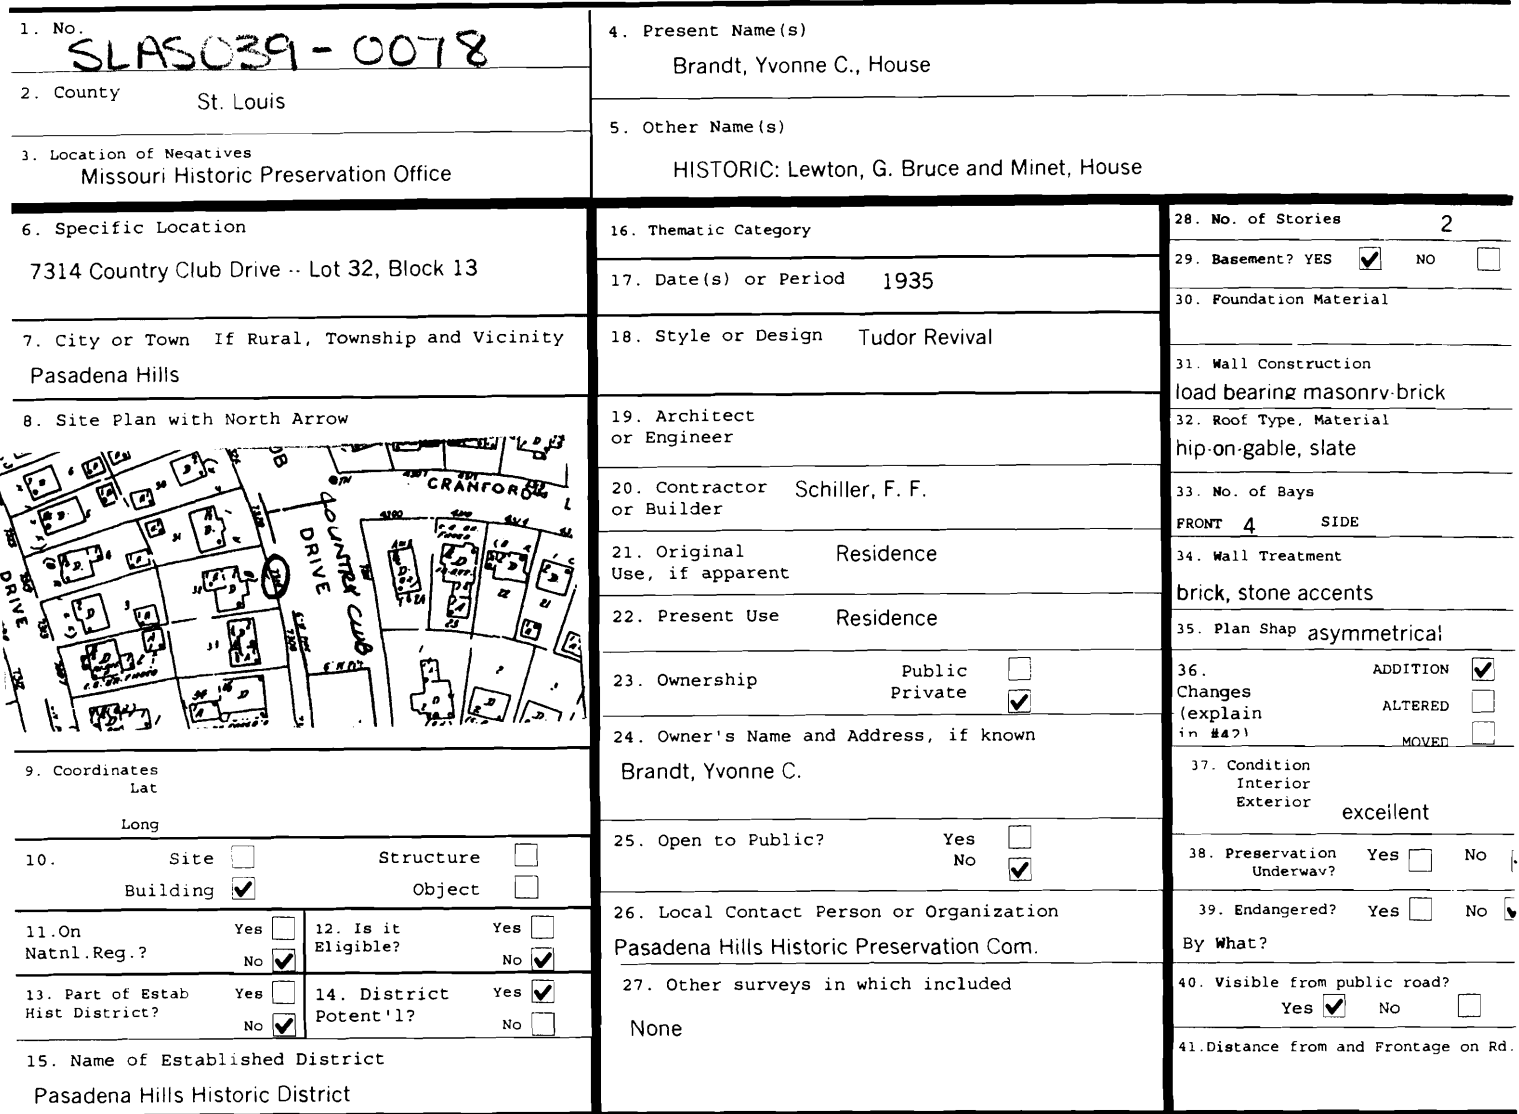 1. No.
SLAS039-0078
2. County St. Louis
3. Location of Negatives
Missouri Historic Preservation Office
4. Present Name(s)
Brandt, Yvonne C., House
5. Other Name(s)
HISTORIC: Lewton, G. Bruce and Minet, House
6. Specific Location
7314 Country Club Drive -- Lot 32, Block 13
7. City or Town If Rural, Township and Vicinity
Pasadena Hills
8. Site Plan with North Arrow
CRANFORD
COUNTRY CLUB
DRIVE
DRIVE
9. Coordinates
Lat
Long
10. Site Structure
Building ✔ Object
11.On
Natnl.Reg.?
Yes
No ✔
12. Is it
Eligible?
Yes
No ✔
13. Part of Estab
Hist District?
Yes
No ✔
14. District
Potent'l?
Yes ✔
No
15. Name of Established District
Pasadena Hills Historic District
16. Thematic Category
17. Date(s) or Period 1935
18. Style or Design Tudor Revival
19. Architect
or Engineer
20. Contractor Schiller, F. F.
or Builder
21. Original Residence
Use, if apparent
22. Present Use Residence
23. Ownership
Public
Private ✔
24. Owner's Name and Address, if known
Brandt, Yvonne C.
25. Open to Public? Yes
No ✔
26. Local Contact Person or Organization
Pasadena Hills Historic Preservation Com.
27. Other surveys in which included
None
28. No. of Stories 2
29. Basement? YES ✔ NO
30. Foundation Material
31. Wall Construction
load bearing masonry-brick
32. Roof Type, Material
hip-on-gable, slate
33. No. of Bays
FRONT 4 SIDE
34. Wall Treatment
brick, stone accents
35. Plan Shap asymmetrical
36.
Changes
(explain
in #42)
ADDITION ✔
ALTERED
MOVED
37. Condition
Interior
Exterior excellent
38. Preservation Yes No
Underway?
39. Endangered? Yes No ✔
By What?
40. Visible from public road?
Yes ✔ No
41.Distance from and Frontage on Rd.